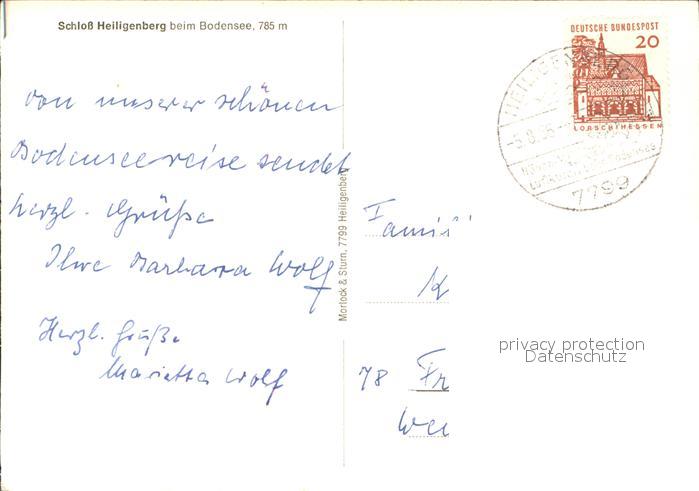 Schloß Heiligenberg beim Bodensee, 785 m
von unserer schönen
Bodenseereise sendet
herzl. Grüße
Ihre Barbara Wolf
Herzl. Grüße
Marietta Wolf
Mortock & Sturn, 7799 Heiligenberg
DEUTSCHE BUNDESPOST
20
LORSCH/HESSEN
HEILIGENBERG
7799
Famili
K
78 Fr
Wei
privacy protection
Datenschutz